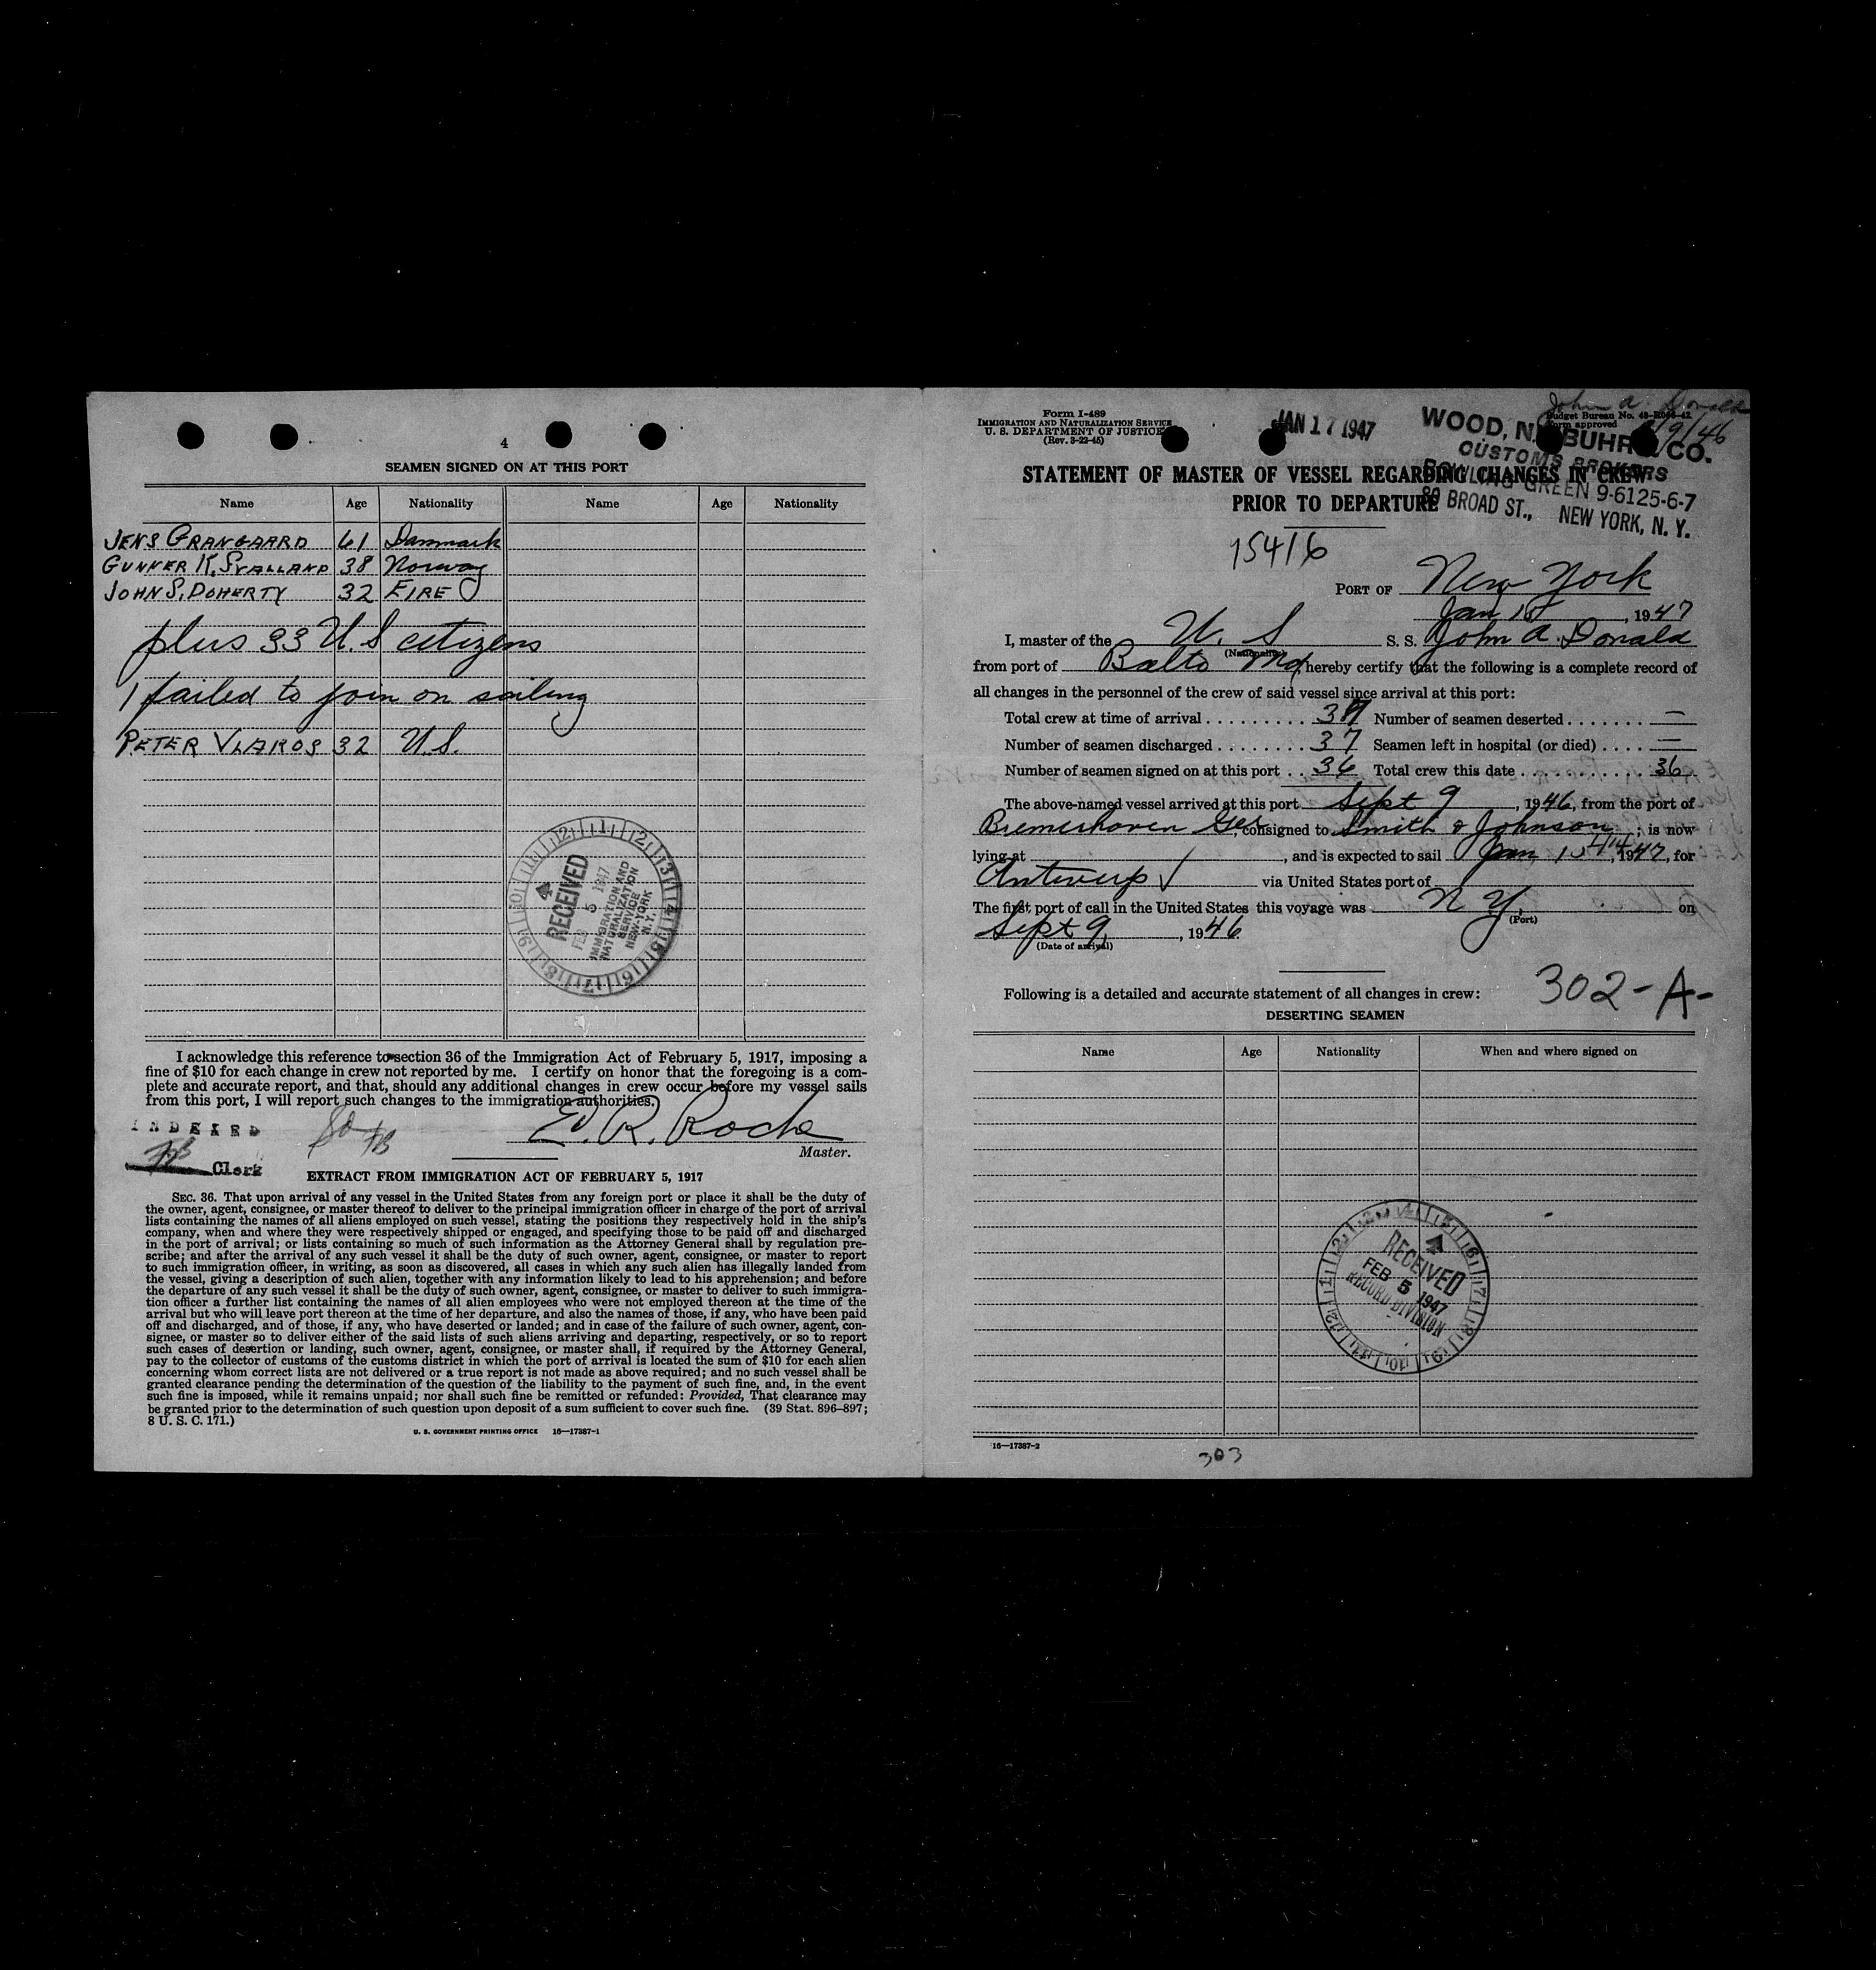 4
SEAMEN SIGNED ON AT THIS PORT
Name Age Nationality Name Age Nationality
JENS GRANGAARD 61 Danmark
GUNNER K. SVALLAND 38 Norway
JOHN S. DOHERTY 32 EIRE
plus 33 U.S citizens
1 failed to join on sailing
PETER VLAKOS 32 U.S.
RECEIVED
FEB 5 1947
IMMIGRATION AND
NATURALIZATION
SERVICE
NEW-YORK
N.Y.
I acknowledge this reference to section 36 of the Immigration Act of February 5, 1917, imposing a
fine of $10 for each change in crew not reported by me. I certify on honor that the foregoing is a com-
plete and accurate report, and that, should any additional changes in crew occur before my vessel sails
from this port, I will report such changes to the immigration authorities.
E. R. Roche
Master.
INDEXED
Clerk
EXTRACT FROM IMMIGRATION ACT OF FEBRUARY 5, 1917
SEC. 36. That upon arrival of any vessel in the United States from any foreign port or place it shall be the duty of
the owner, agent, consignee, or master thereof to deliver to the principal immigration officer in charge of the port of arrival
lists containing the names of all aliens employed on such vessel, stating the positions they respectively hold in the ship's
company, when and where they were respectively shipped or engaged, and specifying those to be paid off and discharged
in the port of arrival; or lists containing so much of such information as the Attorney General shall by regulation pre-
scribe; and after the arrival of any such vessel it shall be the duty of such owner, agent, consignee, or master to report
to such immigration officer, in writing, as soon as discovered, all cases in which any such alien has illegally landed from
the vessel, giving a description of such alien, together with any information likely to lead to his apprehension; and before
the departure of any such vessel it shall be the duty of such owner, agent, consignee, or master to deliver to such immigra-
tion officer a further list containing the names of all alien employees who were not employed thereon at the time of the
arrival but who will leave port thereon at the time of her departure, and also the names of those, if any, who have been paid
off and discharged, and of those, if any, who have deserted or landed; and in case of the failure of such owner, agent, con-
signee, or master so to deliver either of the said lists of such aliens arriving and departing, respectively, or so to report
such cases of desertion or landing, such owner, agent, consignee, or master shall, if required by the Attorney General,
pay to the collector of customs of the customs district in which the port of arrival is located the sum of $10 for each alien
concerning whom correct lists are not delivered or a true report is not made as above required; and no such vessel shall be
granted clearance pending the determination of the question of the liability to the payment of such fine, and, in the event
such fine is imposed, while it remains unpaid; nor shall such fine be remitted or refunded: Provided, That clearance may
be granted prior to the determination of such question upon deposit of a sum sufficient to cover such fine. (39 Stat. 896–897;
8 U. S. C. 171.)
U. S. GOVERNMENT PRINTING OFFICE 16—17387-1
Form I-489
IMMIGRATION AND NATURALIZATION SERVICE
U. S. DEPARTMENT OF JUSTICE
(Rev. 3-22-45)
JAN 17 1947
John A. Donald
Budget Bureau No.
Form approved
9/9/46
WOOD, BUHR CO.
CUSTOMS BROKERS
BOWLING GREEN 9-6125-6-7
80 BROAD ST., NEW YORK, N. Y.
STATEMENT OF MASTER OF VESSEL REGARDING CHANGES IN CREW
PRIOR TO DEPARTURE
15416
PORT OF New York
Jan 15, 1947
I, master of the U. S S. S. John A. Donald
(Nationality)
from port of Balto Md, hereby certify that the following is a complete record of
all changes in the personnel of the crew of said vessel since arrival at this port:
Total crew at time of arrival 37 Number of seamen deserted —
Number of seamen discharged 37 Seamen left in hospital (or died) —
Number of seamen signed on at this port 36 Total crew this date 36
The above-named vessel arrived at this port Sept 9, 1946, from the port of
Bremerhaven Ger, consigned to Smith & Johnson; is now
lying at , and is expected to sail Jan 15, 1947, for
Antwerp ✓ via United States port of
The first port of call in the United States this voyage was N Y. on
(Port)
Sept 9, 1946
(Date of arrival)
Following is a detailed and accurate statement of all changes in crew:
302-A-
DESERTING SEAMEN
Name Age Nationality When and where signed on
RECEIVED
FEB 5 1947
RECORD DIVISION
16—17387-2
303